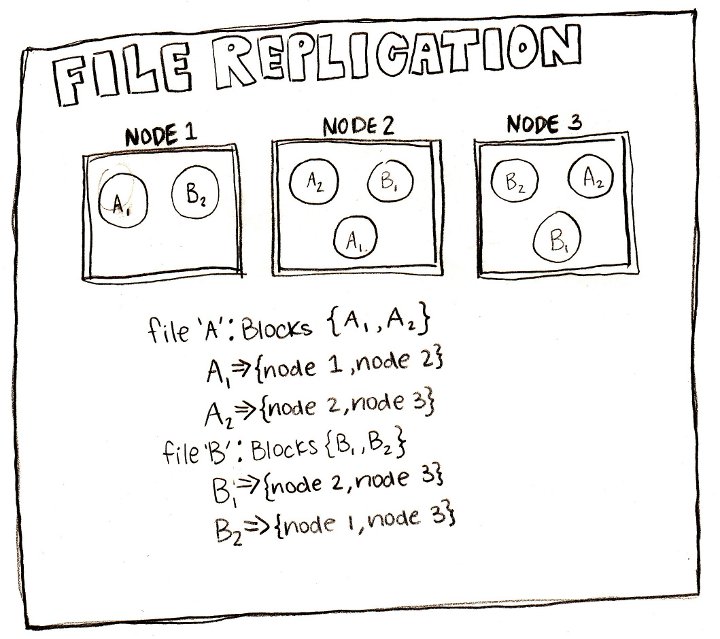 FILE REPLICATION
NODE 1 NODE 2 NODE 3
A₁ B₂ A₂ B₁ B₂ A₂
A₁ B₁
file 'A': Blocks {A₁, A₂}
A₁⇒{node 1, node 2}
A₂⇒{node 2, node 3}
file 'B': Blocks {B₁, B₂}
B₁⇒{node 2, node 3}
B₂⇒{node 1, node 3}